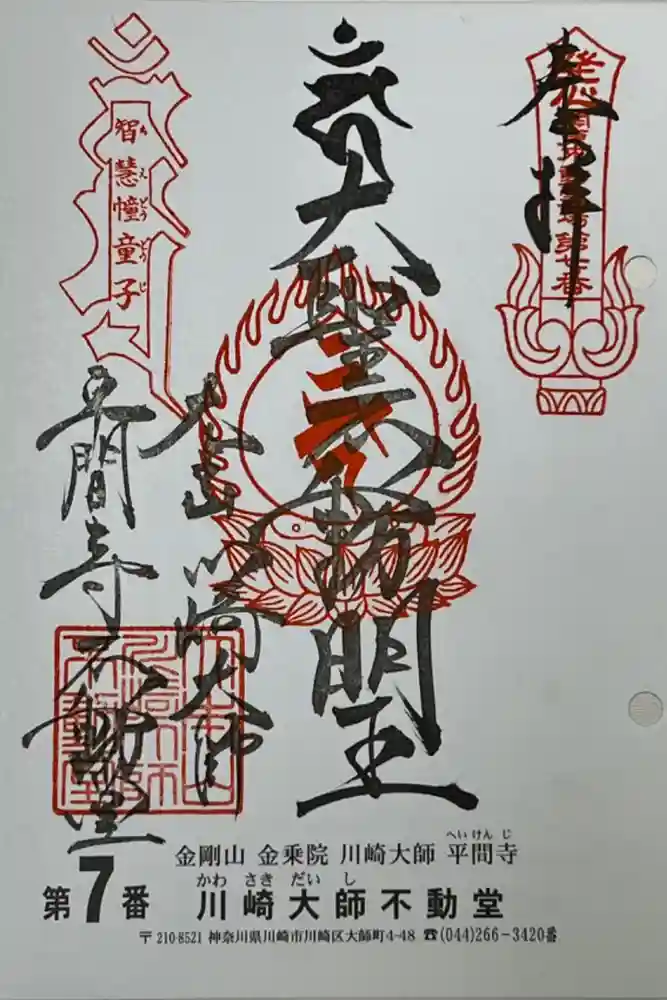 奉拝
発心 関東三十六不動霊場第七番
大聖不動明王
大山
川崎大師
平間寺
不動堂
智慧幢童子
ち え どう どう じ
金剛山 金乗院 川崎大師 平間寺
へい けん じ
第7番 川崎大師不動堂
かわ さき だい し
〒210-8521 神奈川県川崎市川崎区大師町4-48 ☎(044)266-3420番